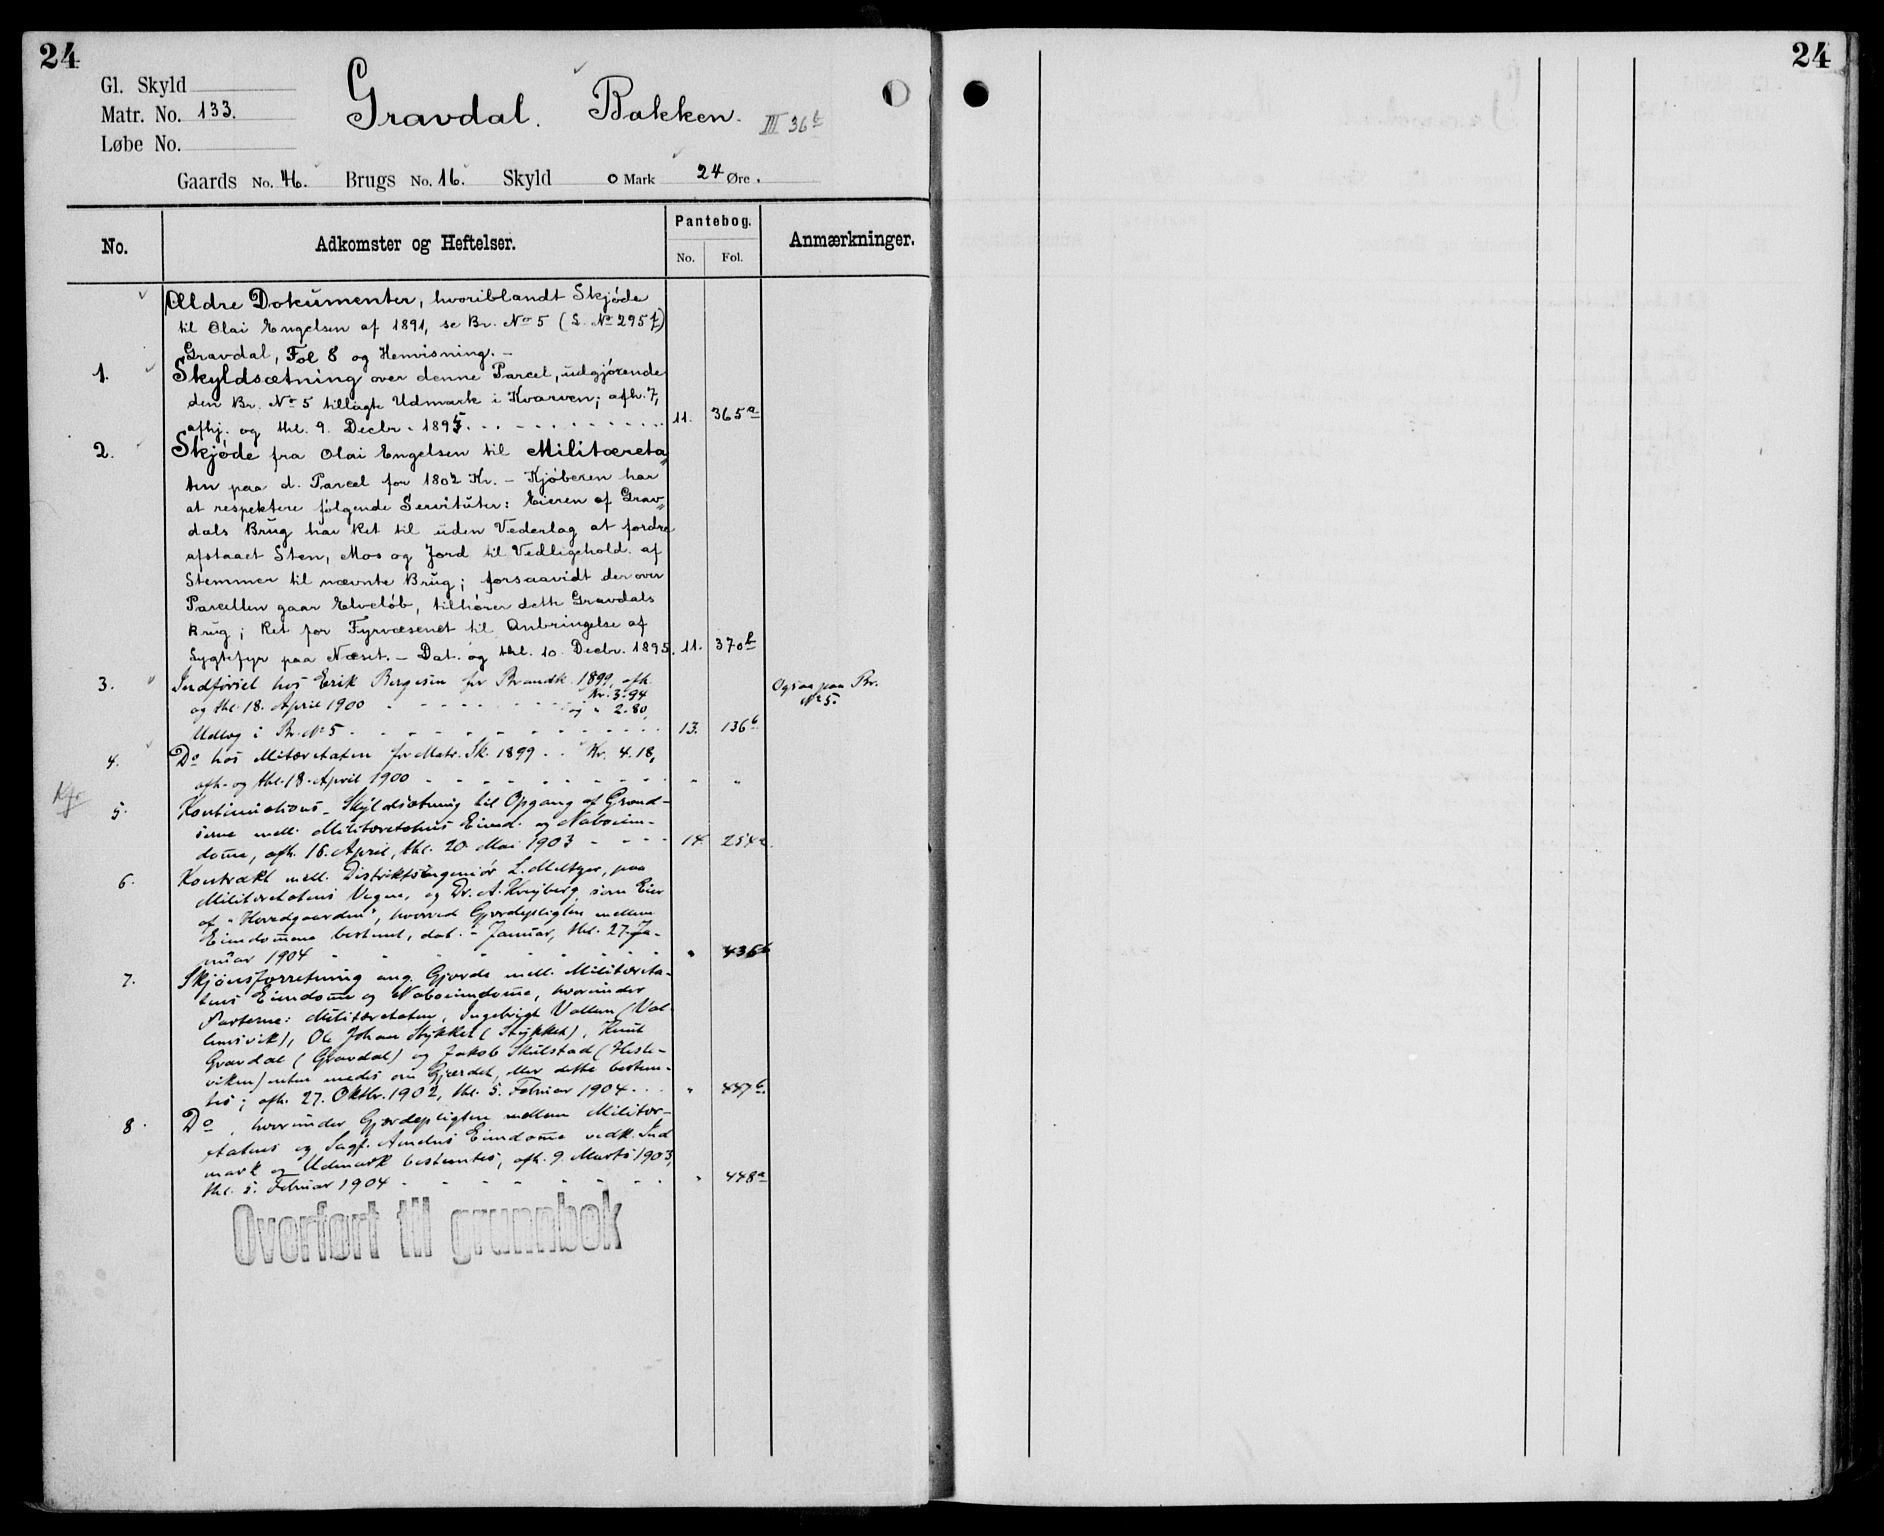 24
24
Gl. Skyld
Matr. No. 133.
Løbe No.
Gravdal. Bakken.
III 36b
Gaards No. 46. Brugs No. 16. Skyld 0 Mark 24 Øre.
Pantebog.
No. Adkomster og Heftelser. No. Fol. Anmærkninger.
Ældre Dokumenter, hvoriblandt Skjøde
til Olai Engelsen af 1891, se Br. No 5 (L. No 295 f)
Gravdal, Fol 8 og Henvisning. -
1. Skyldsætning over denne Parcel, udgjørende
den Br. No 5 tillagte Udmark i Kvarven; afh. 7,
afhj. og thl. 9. Decbr. 1895 11. 365a
2. Skjøde fra Olai Engelsen til Militæreta„
ten paa d. Parcel for 1802 Kr. - Kjøberen har
at respektere følgende Servituter: Eieren af Grav„
dals Brug har Ret til uden Vederlag at fordre
afstaaet Sten, Mos og Jord til Vedligehold. af
Stemmer til nævnte Brug; forsaavidt der over
Parcellen gaar Elveløb, tilhører dette Gravdals
Brug; Ret for Fyrvæsenet til Anbringelse af
Lygtefyr paa Næset. - Dat. og thl. 10. Decbr. 1895. 11. 370b
3. Indførsel hos Erik Bergesen for Brandk. 1899, afh.
Kr. 3.94
og thl. 18. April 1900 og " 2.80,
Udlæg i Br. No 5 13. 136b
Ogsaa paa Br.
No 5.
4. Do hos Mitæretaten for Matr. Sk. 1899 Kr. 4.18,
afh. og thl. 18. April 1900 " "
Kfr
5. Kontinuations-Skyldsætning til Opgang af Grænd-
serne mell. Militæretatens Eiend. og Naboeien-
domme, afh. 16. April, thl. 20. Mai 1903 14. 254a.
6. Kontrakt mell. Distriktsingeniør L. Meltzer, paa
Militæretatens Vegne, og Dr. A. Kreyberg som Eier
af "Hovedgaarden", hvorved Gjærdepligten mellem
Eiendommene bestemt, dat. - Januar, thl. 27. Ja-
nuar 1904 " 436b
7. Skjønsforretning ang. Gjærde mell. Militæreta-
tens Eiendomme og Naboeiendomme, hvorunder
Parterne: Militæretaten, Ingebrigt Vallem (Val-
lemsvik), Ole Johan Stykket (Stykket), Knut
Gravdal (Gravdal) og Jakob Skulstad (Hesle-
viken) enten enedes om Gjærdet, eller dette bestem-
tes; afh. 27. Oktbr. 1902, thl. 5. Februar 1904 " 447b.
8. Do, hvorunder Gjærdepligten mellem Militær-
etatens og Sagf. Eiendomme vedk. Ind
mark og Udmark bestemtes, afh. 9. Marts 1903,
thl. 5. Februar 1904 " 448a
Overført til grunnbok